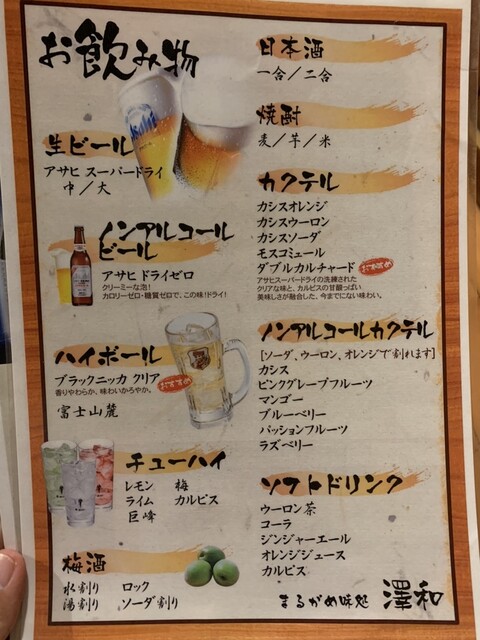 お飲み物
生ビール
アサヒ スーパードライ
中／大
ノンアルコール
ビール
アサヒ ドライゼロ
クリーミーな泡！
カロリーゼロ・糖質ゼロで、この味！ドライ！
ハイボール
ブラックニッカ クリア
おすすめ
香りやわらか、味わいかろやか。
富士山麓
チューハイ
レモン 梅
ライム カルピス
巨峰
梅酒
水割り ロック
湯割り ソーダ割り
日本酒
一合／二合
焼酎
麦／芋／米
カクテル
カシスオレンジ
カシスウーロン
カシスソーダ
モスコミュール
ダブルカルチャード
おすすめ
アサヒスーパードライの洗練された
クリアな味と、カルピスの甘酸っぱい
美味しさが融合した、今までにない味わい。
ノンアルコールカクテル
[ソーダ、ウーロン、オレンジで割れます]
カシス
ピンクグレープフルーツ
マンゴー
ブルーベリー
パッションフルーツ
ラズベリー
ソフトドリンク
ウーロン茶
コーラ
ジンジャーエール
オレンジジュース
カルピス
まるがめ味処 澤和